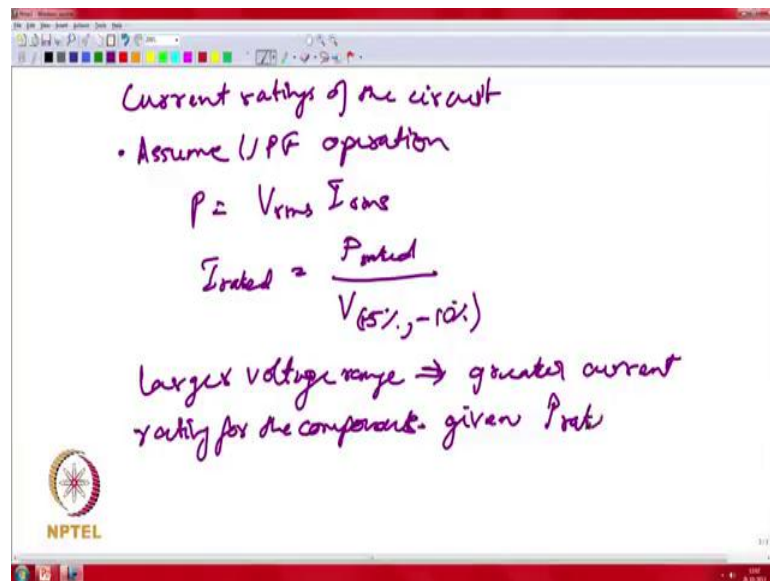 Current ratings of the circuit
• Assume UPF operation
P = Vrms Irms
Irated = Prated
V(+5%, -10%)
Larger voltage range ⇒ greater current
rating for the components given Prat
NPTEL